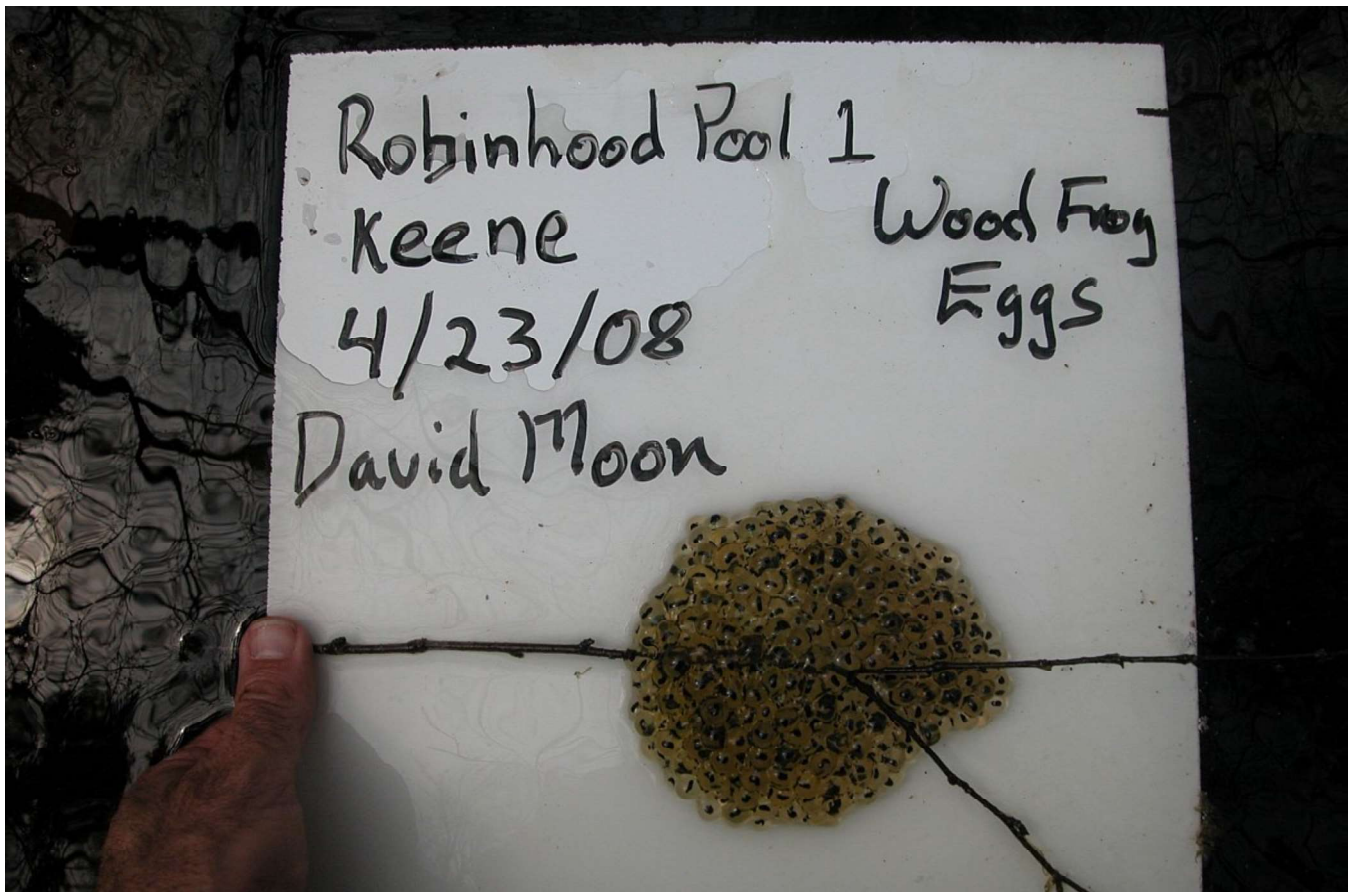 Robinhood Pool 1
Keene
4/23/08
David Moon
Wood Frog
Eggs